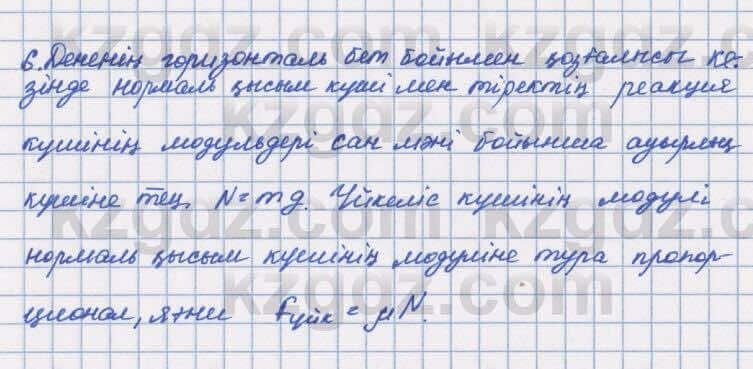 6. Дененің горизонталь бет бойымен қозғалысы ке-
зінде нормаль қысым күші мен тіректің реакция
күшінің модульдері сан мәні бойынша ауырлық
күшіне тең, N = mg. Үйкеліс күшінің модулі
нормаль қысым күшінің модуліне тура пропор-
ционал, яғни Fүйк = μN.
kzgdz.com